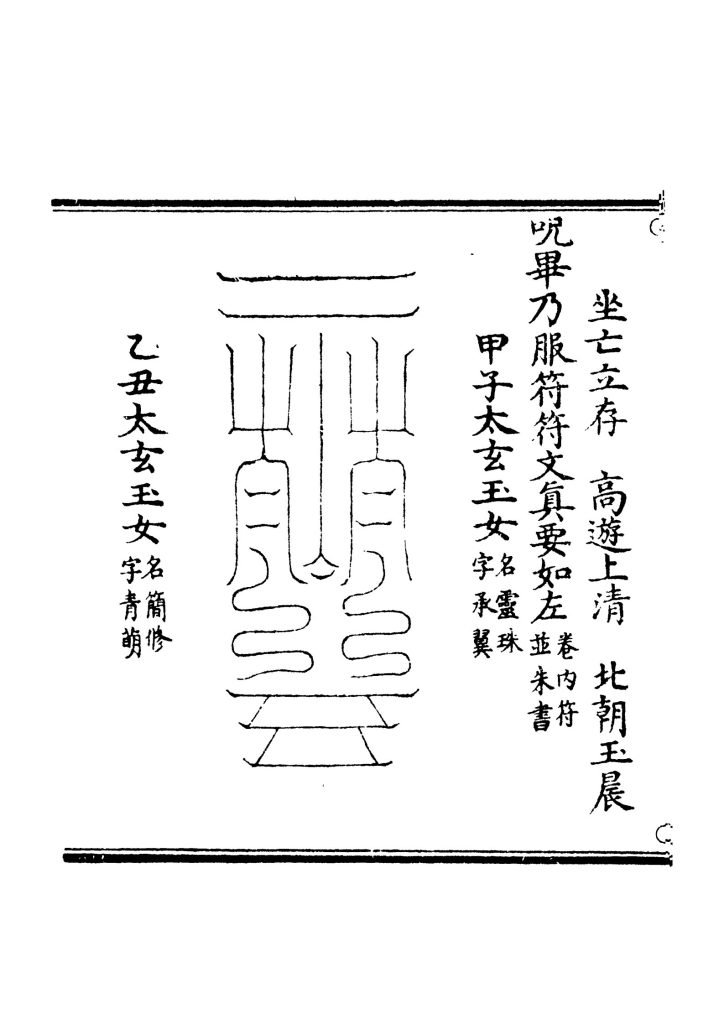 坐亡立存　高遊上清　北朝玉晨
呪畢乃服符符文真要如左卷内符
並朱書
甲子太玄玉女名靈珠
字承翼
乙丑太玄玉女名簡修
字青萌